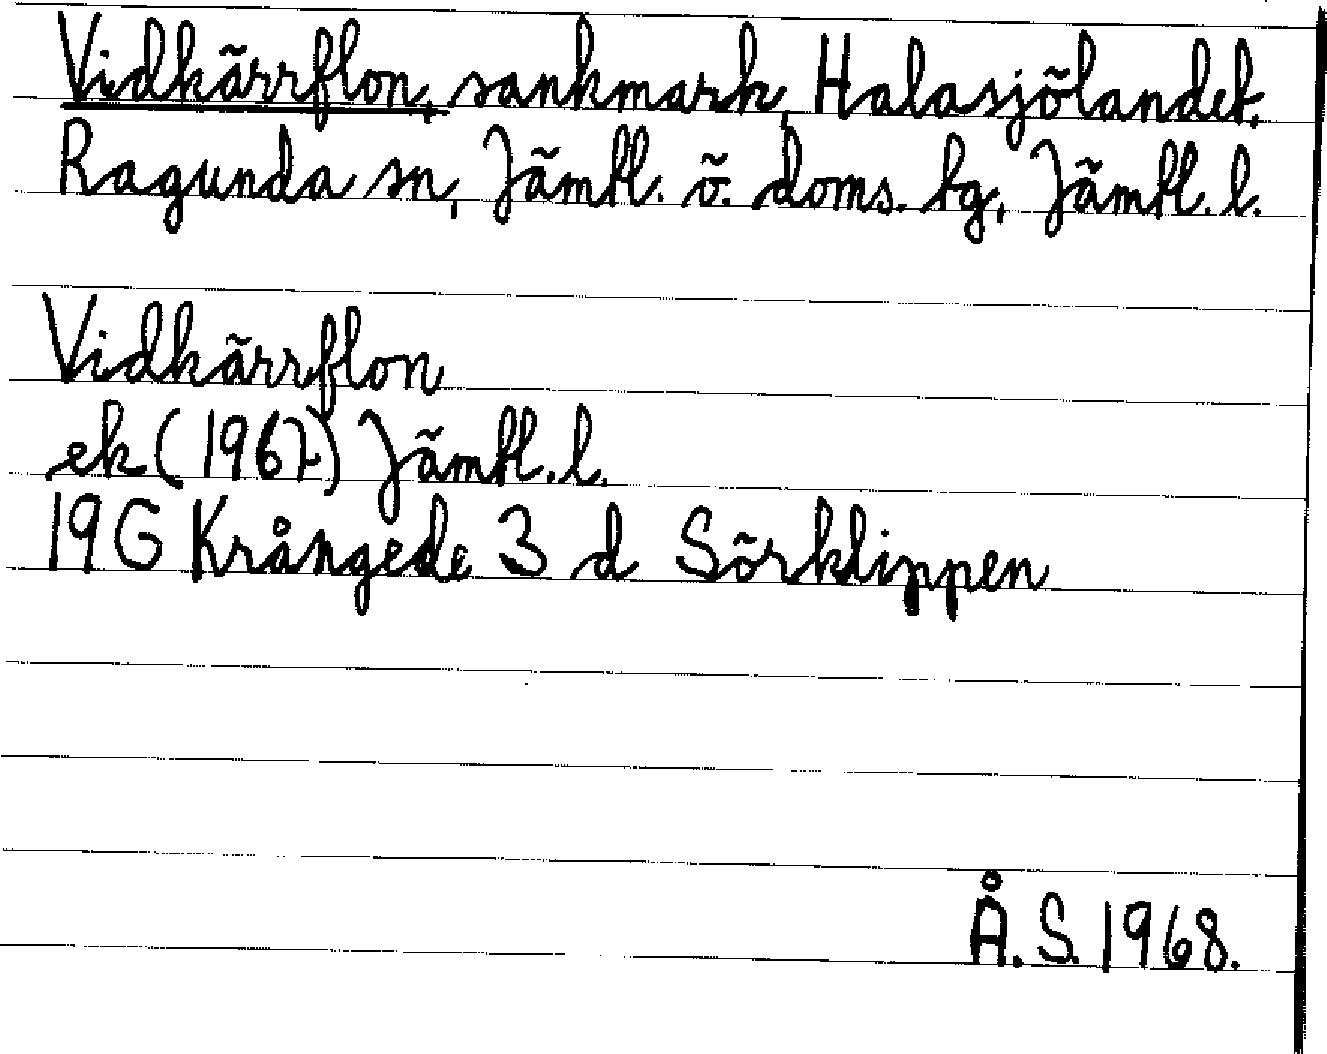 Vidkärrflon, sankmark, Halasjölandet,
Ragunda sn, Jämtl. ö. doms. tg, Jämtl. l.
Vidkärrflon
ek (1967) Jämtl. l.
19G Krångede 3 d Sörklippen
Å. S. 1968.